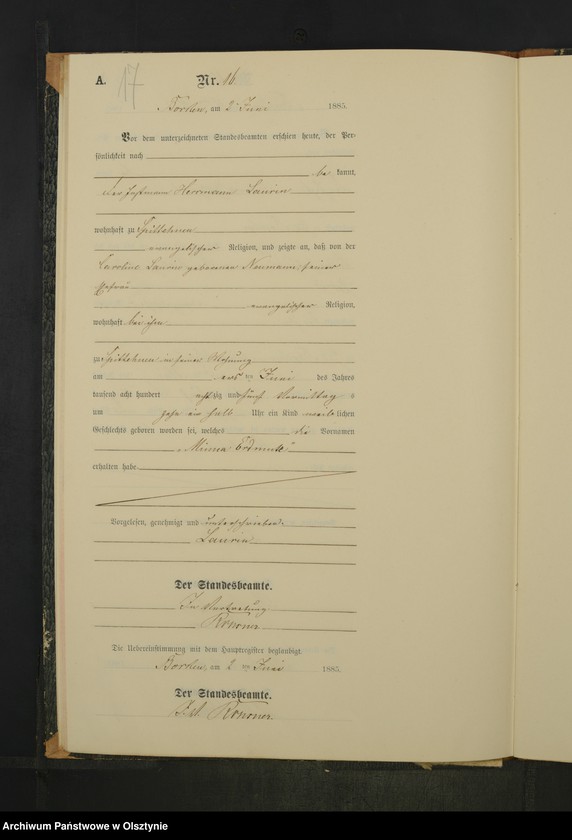 A. 17 Nr. 16.
am 2 Juni 1885.
Vor dem unterzeichneten Standesbeamten erschien heute, der Per-
sönlichkeit nach
be kannt,
der Herrmann Laurin
wohnhaft zu Spittehnen
evangelischer Religion, und zeigte an, daß von der
Caroline Laurin geborenen Neumann, seiner
Ehefrau
evangelischer Religion,
wohnhaft bei ihm
zu Spittehnen in seiner Wohnung
am ten Juni des Jahres
tausend acht hundert achtzig und fünf Vormittag s
um zehn ein halb Uhr ein Kind weib lichen
Geschlechts geboren worden sei, welches die Vornamen
„Minna Erdmute“
erhalten habe
Vorgelesen, genehmigt und unterschrieben
Laurin
Der Standesbeamte.
In Vertretung
Die Uebereinstimmung mit dem Hauptregister beglaubigt.
am 2 ten Juni 1885.
Der Standesbeamte.
Archiwum Państwowe w Olsztynie